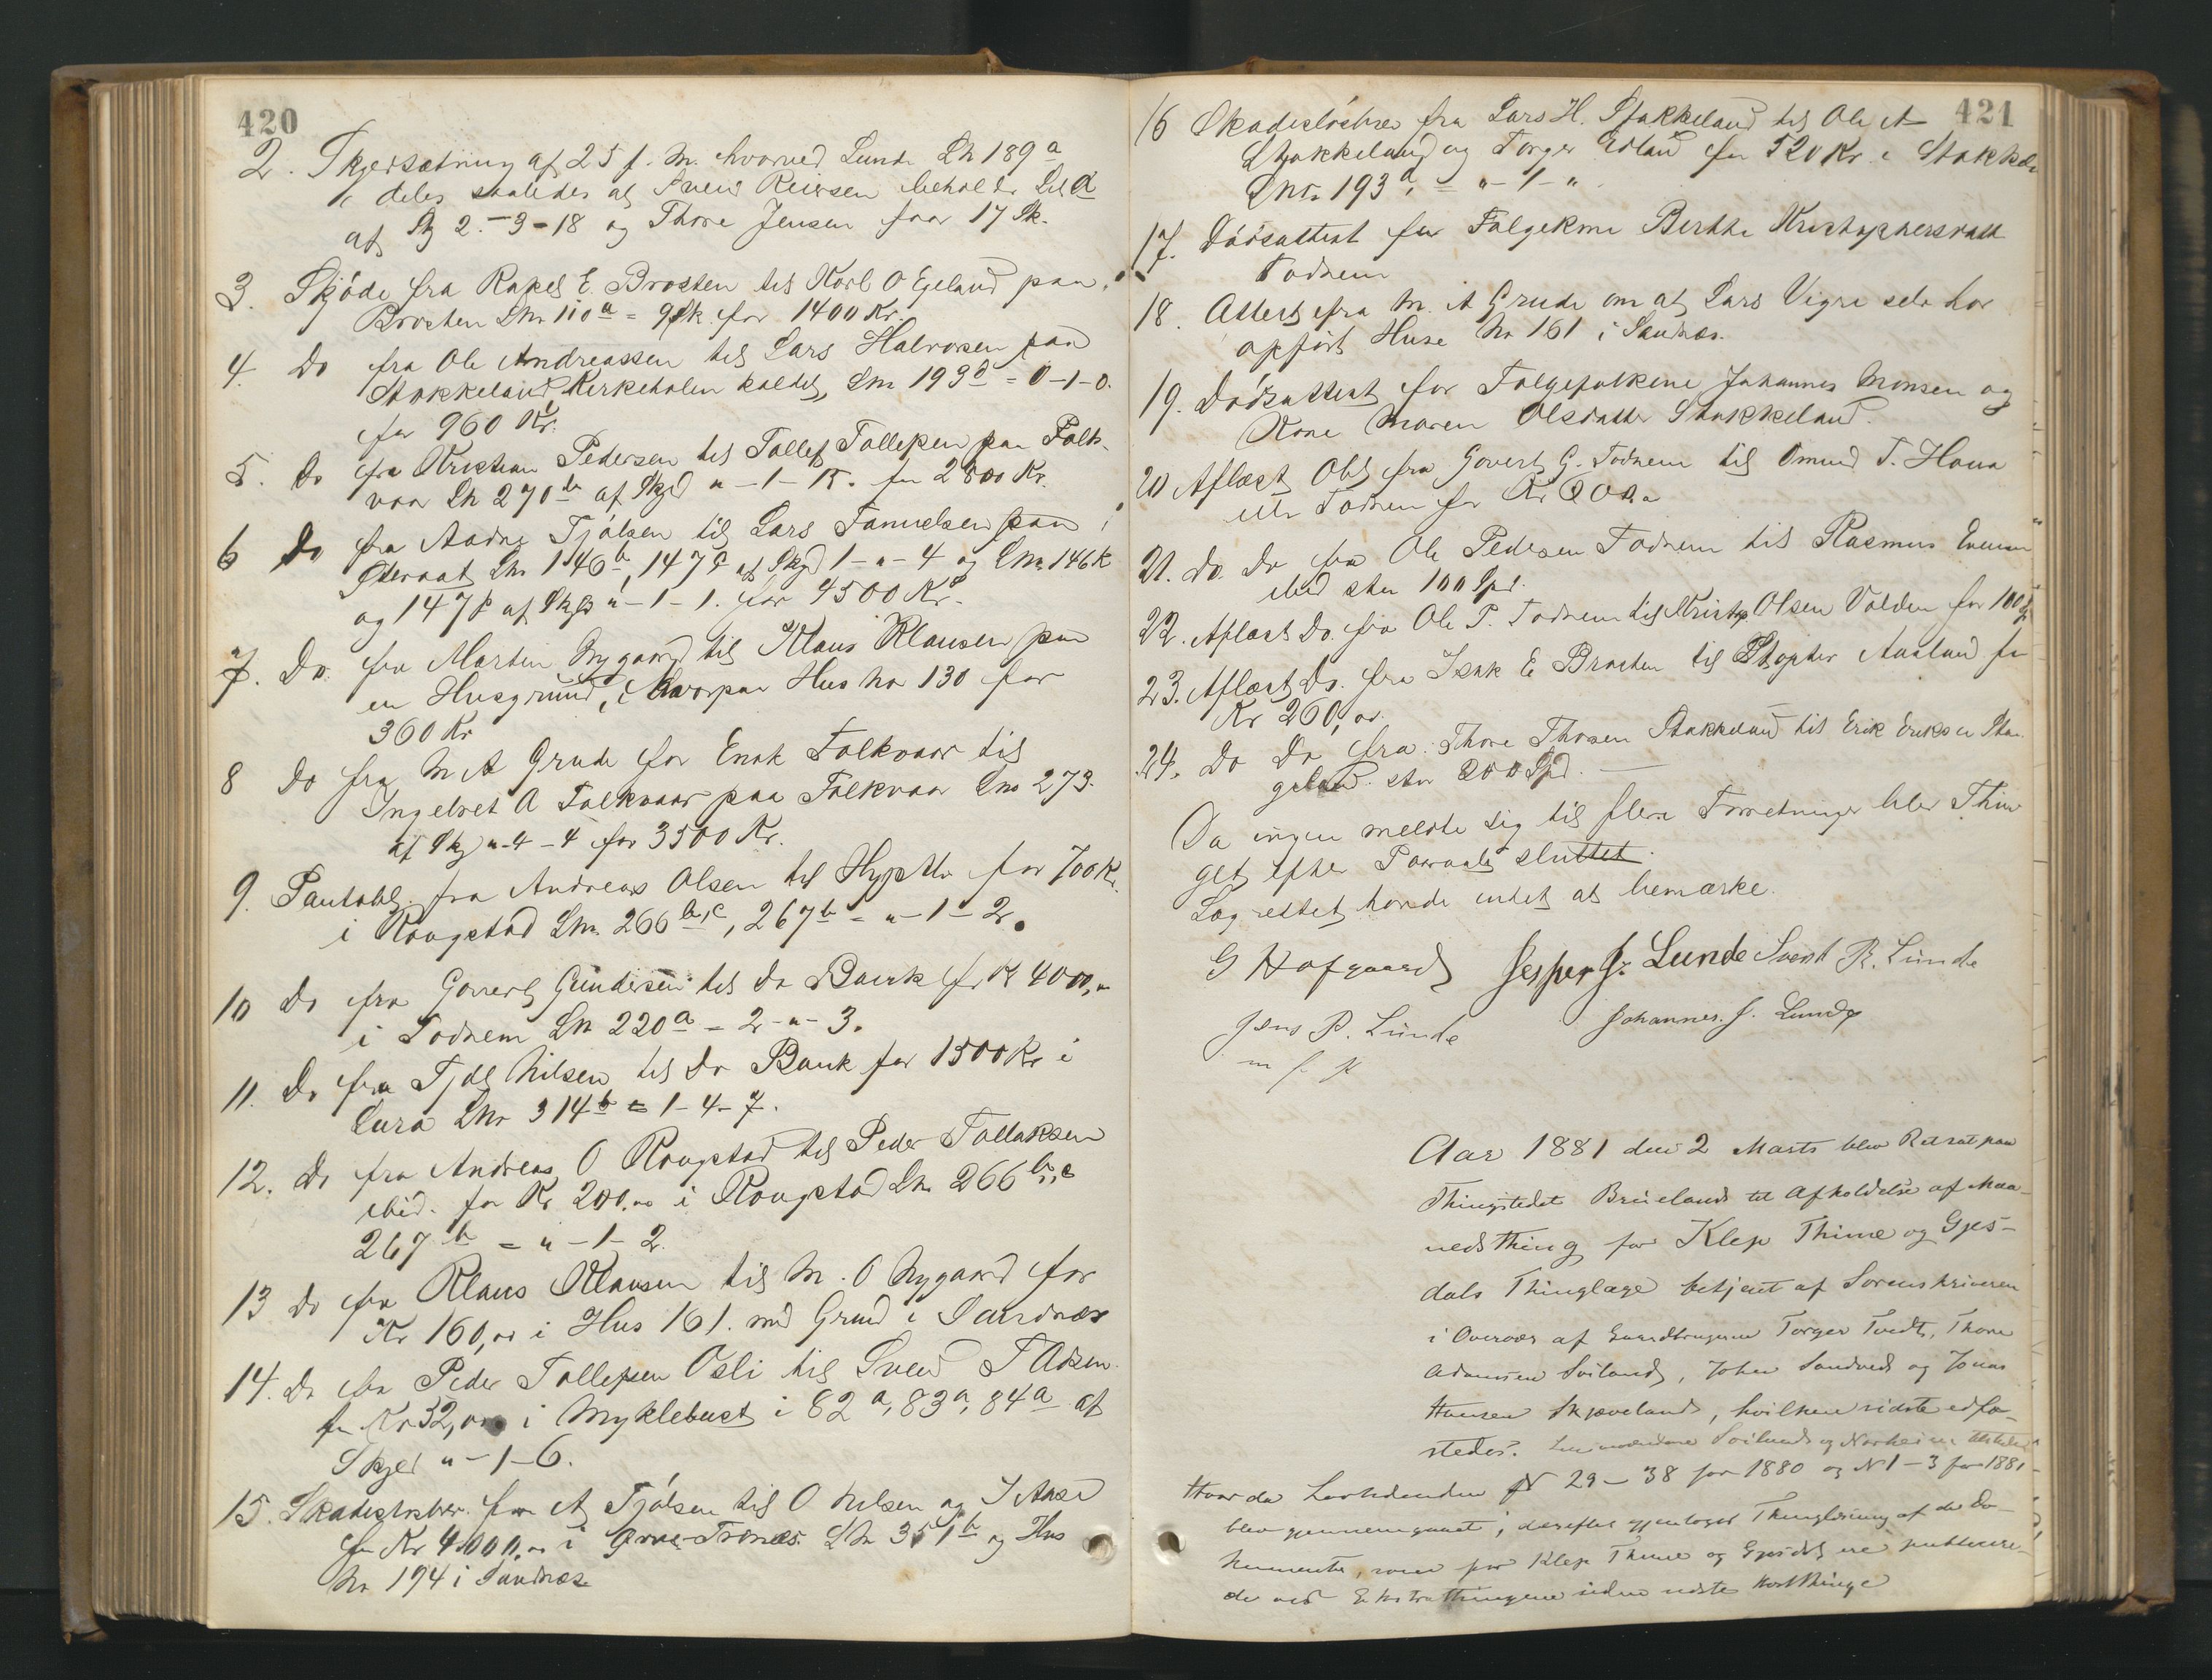 420
2. Skyldsætning af 25 f. M. hvorved Lunde Ln 189 a
deles saaledes at Svend Reiersen beholder Del a
af Skg 2-3-18 og Thore Jensen faar 17 Sk.
3. Skjöde fra Rakel E. Brosten til Karl O Egeland paa
Brosten Lnr 110 a = 9 Sk for 1400 Kr.
4. Do fra Ole Andreassen til Lars Halvorsen paa
Stokkeland, Kirkeholen kaldet, Lnr 193 d = 0-1-0.
for 960 Kr.
5. Do fra Kristian Pedersen til Tollef Tollefsen paa Folk-
vor Ln 270 b af Skyld " - 1 - 15. for 2800 Kr.
6 Do fra Aadne Tjölsen til Lars Samuelsen paa
Lnr 146 b, 147 c af Skyld 1 - " - 4 og Lnr 146 k
og 147 f af Skyld " - 1 - 1. for 4500 Kr.
7. Do. fra Martin Nygaard til Klaus Klausen paa
en Husgrund, hvorpaa Hus No 130 for
360 Kr
8 Do fra M A Grude for Enok Folkvor til
Ingebret A Folkvor paa Folkvor Lno 273.
af Skg " - 4 - 4 for 3500 Kr.
9. Pantobl. fra Andreas Olsen til Hyp for 700 Kr.
i Rovgstad Lnr. 266 b, c, 267 b = " - 1 - 2.
10 Do fra Govert Gundersen til Do Bank for Kr 4000,"
i Todnem Ln 220 a = 2 - " - 3.
11. Do fra Tjöl Nilsen til Do Bank for 1500 Kr i
Lura Lnr 314 b = 1 - 4 - 7.
12. Do fra Andreas O Rovgstad til Peder Tollaksen
ibid. for Kr 200.00 i Rovgstad Ln 266 b, c
267 b = " - 1 - 2.
13 Do fra Klaus Klausen til M. O Nygaard for
Kr 160,00 i Hus 161. med Grund i Sandnæs
14. Do fra Peder Tollefsen Osli til Svend T Adsen
for Kr 32,00 i Myklebust i 82 a, 83 a, 84 a af
Skyld " - 1 - 6.
15. Skadeslösbr. fra A Tjölsen til O Nilsen og
for Kr 4000,00 i Trones Ln 351 b og Hus
No 194 i Sandnæs
421
16 Skadeslösbrev fra Lars H. Stokkeland til Ole A
Stokkeland og Torger Edland for 520 Kr i Stokkel.
Lnr. 193 d, = " - 1 - "
17. Dödsattest for Folgekone Berthe Kristophersdatt
Todnem
18. Attest fra M. A Grude om at Lars Vigre selv har
opfört Huse No 161 i Sandnæs.
19. Dödsattest for Folgefolkene Johannes Monsen og
Kone Maren Olsdatter Stokkeland.
20 Aflæst Obl fra Govert G. Todnem til Omund T. Hana
for Kr
21. Do. Do fra Ole Pedersen Todnem til Rasmus Evensen
ibid stor 100 Spd.
22. Aflæst Do. fra Ole P. Todnem til Kristop Olsen Volden for 100 Spd
23. Aflæst Do. fra Isak E Brosten til Aasland for
Kr 260,00.
24. Do Do fra Thore Thorsen Stokkeland til Erik Eriksen Stan-
geland stor 200 Spd.
Da ingen meldte sig til flere Forretninger blev Thin-
get efter Paaraab sluttet.
Lagrettet havde intet at bemærke.
G Hofgaard Jesper J. Lunde Svend R. Lunde
Jens P. Lunde Johannes. J. Lunde
m f p
Aar 1881 den 2 Marts blev Ret sat paa
Thingstedet Bruelands til Afholdelse af Maa-
nedsthing for Klep Thime og Gjes-
dals Thinglage betjent af Sorenskriveren
i Overvær af Gaardbrugerne Torger Tvedt, Thore
Adamsen Soiland, John Sandved og Jonas
Hansen Skjæveland, hvilken sidste edfæ-
stedes. Soiland og Norheim
Hvorda Lovtidenden N 29 - 38 for 1880 og N 1 - 3 for 1881
blev gjennemgaaet, derefter gjentoges Thinglæsning af de Do-
kumenter, som for Klep Thime og Gjesdal ere publicere-
de ved Extrathingene siden sidste Høstthinge